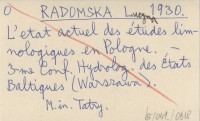 O RADOMSKA Lucyna 1930.
L'etat actuel des études lim-
nologiques en Pologne. -
3-me Conf. Hydrolog. des États
Baltiques (Warszawa).
M. in. Tatry.